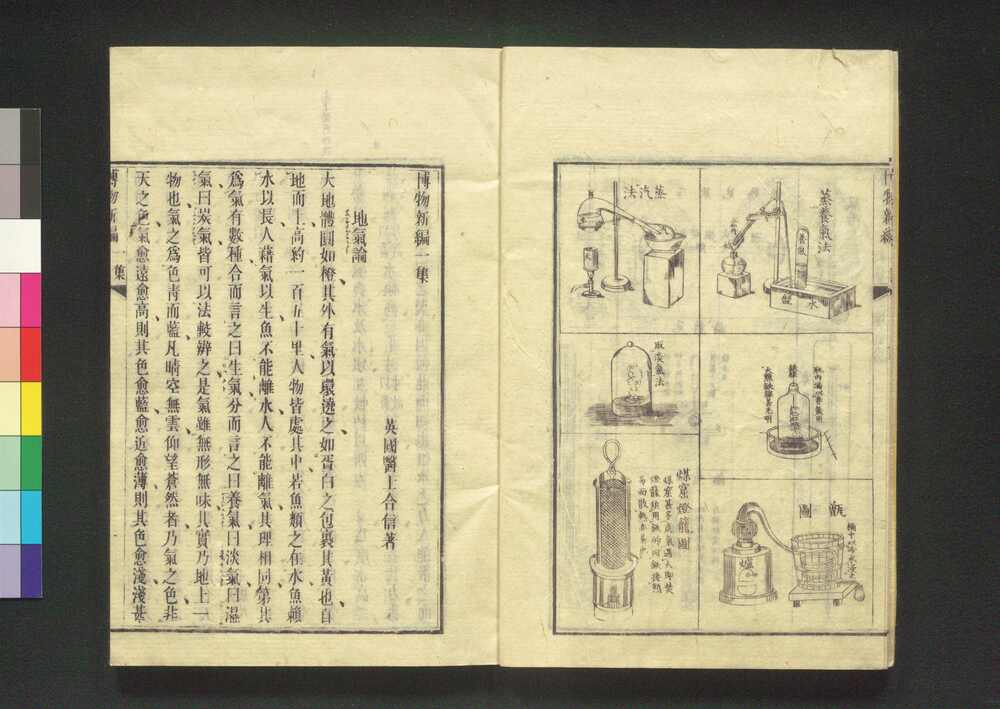 蒸養氣法
養氣
水
盤
蒸汽法
瓶內滿以養氣用
火燃鉄線甚光明
取淡氣法
甑圖
爐
煤窰燈籠圖
煤窰甚多炭氣遇火即焚
燈籠須用
博物新編一集
英國醫士合信著
地氣論
大地體圓如橙其外有氣以環遶之如蛋白之包裹其黃也自
地而上高約一百五十里人物皆處其中若魚類之在水魚賴
水以長人藉氣以生魚不能離水人不能離氣其理相同第其
為氣有數種合而言之曰生氣分而言之曰養氣曰淡氣曰濕
氣曰炭氣皆可以法較辨之是氣雖無形無味其實乃地上一
物也氣之為色靑而藍凡晴空無雲仰望蒼然者乃氣之色非
天之色氣愈遠愈高則其色愈藍愈近愈薄則其色愈淺淺甚
博物新編
一集